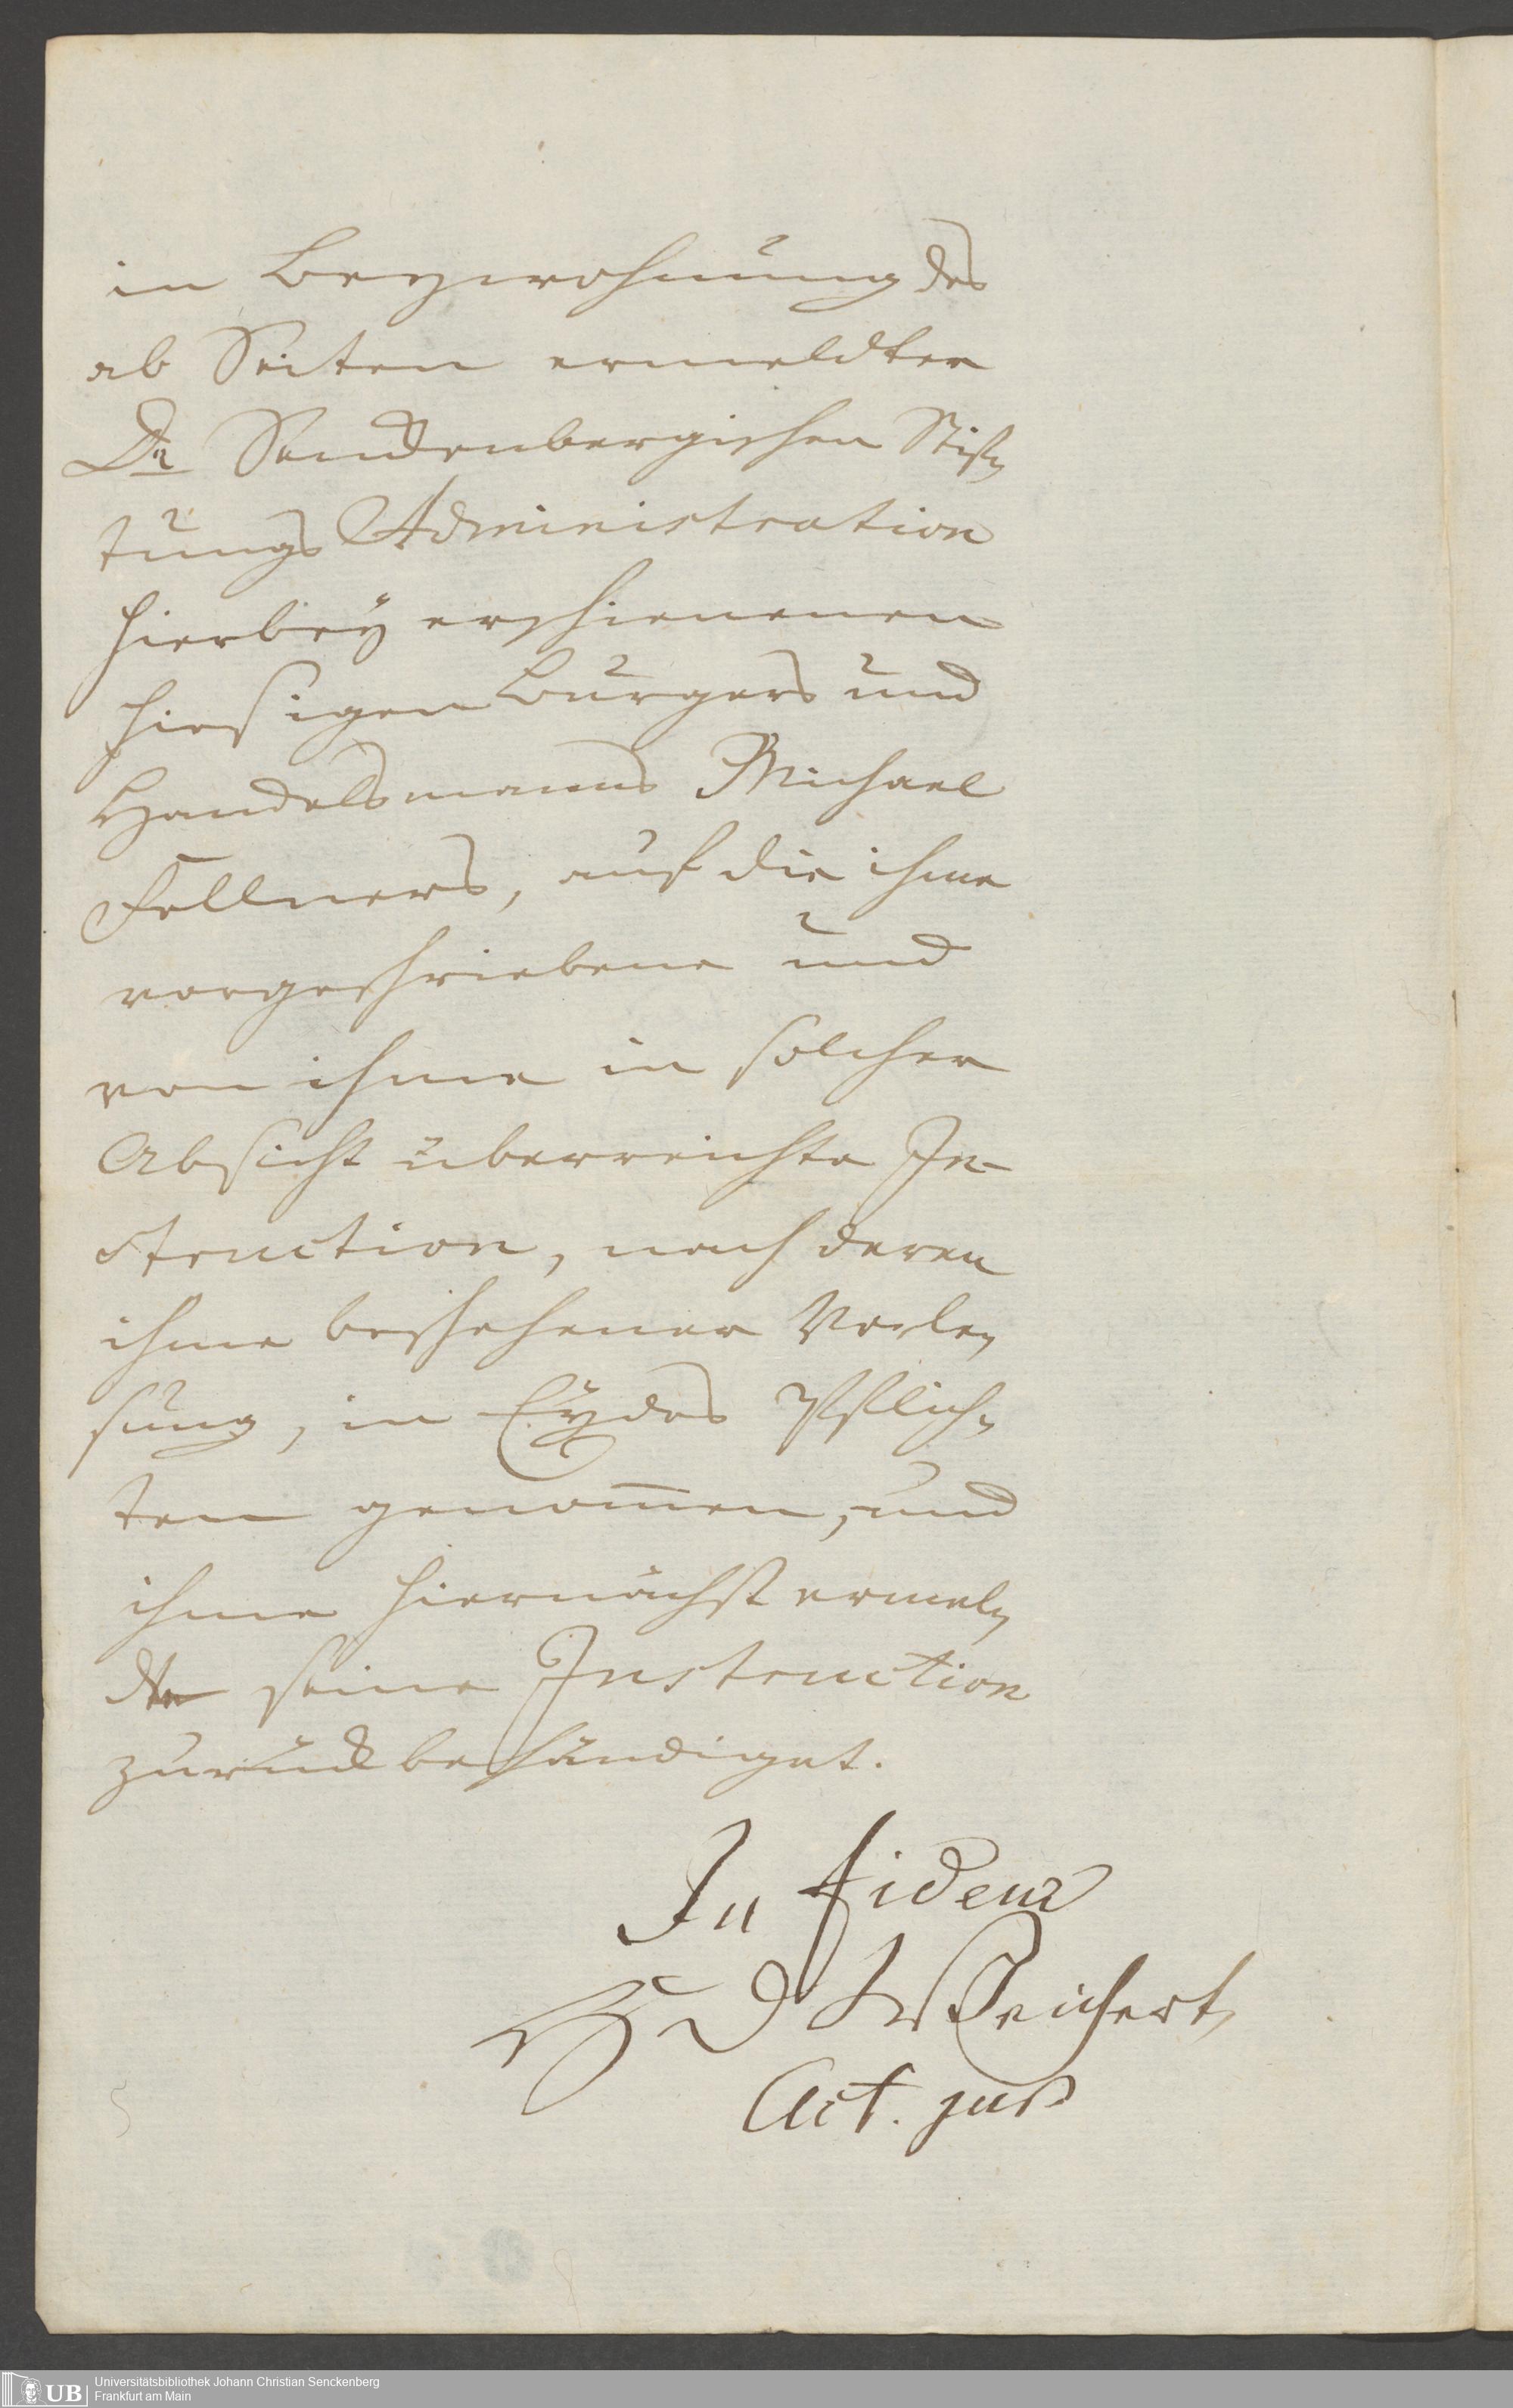 in Beywohnung des
ab Seiten ermeldter
Dr Senckenbergischen Stif-
tungs Administration
hierbey erschienenen
hiesigen Burgers und
Handelsmanns Michael
Fellners, auf die ihme
vorgeschriebene und
von ihme in solcher
Absicht überreichte In-
struction, nach deren
ihme beschehener Vorle-
sung, in Eydes Pflich-
ten genom̅en, und
ihme hiernächst ermel-
dte seine Instruction
zurück behändiget.
In fidem
H D Reichert,
Act. jur.
UB Universitätsbibliothek Johann Christian Senckenberg
Frankfurt am Main